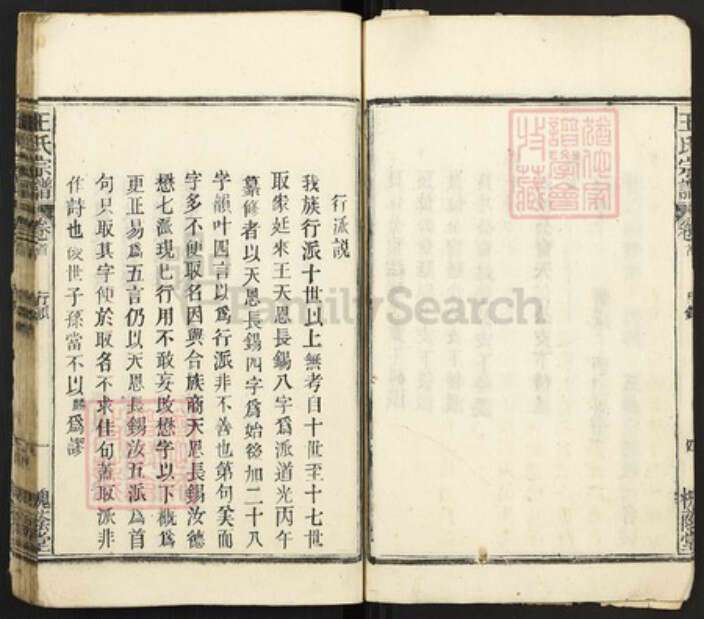 行派說
我族行派十世以上無考自十世至十七世
取崇延來王天恩長錫八字爲派道光丙午
纂修者以天恩長錫四字爲始後加二十八
字韻叶四言以爲行派非不善也第句美而
字多不便取名因與合族商天恩長錫汝德
懋七派現已行用不敢妄改懋字以下概爲
更正易爲五言仍以天恩長錫汝五派爲首
句只取其字便於取名不求佳句蓋取派非
作詩也後世子孫當不以爲謬
王氏宗譜
卷首
行派
一
槐蔭堂
FamilySearch
王氏宗譜
卷首
四
槐蔭堂
譜學會
收藏